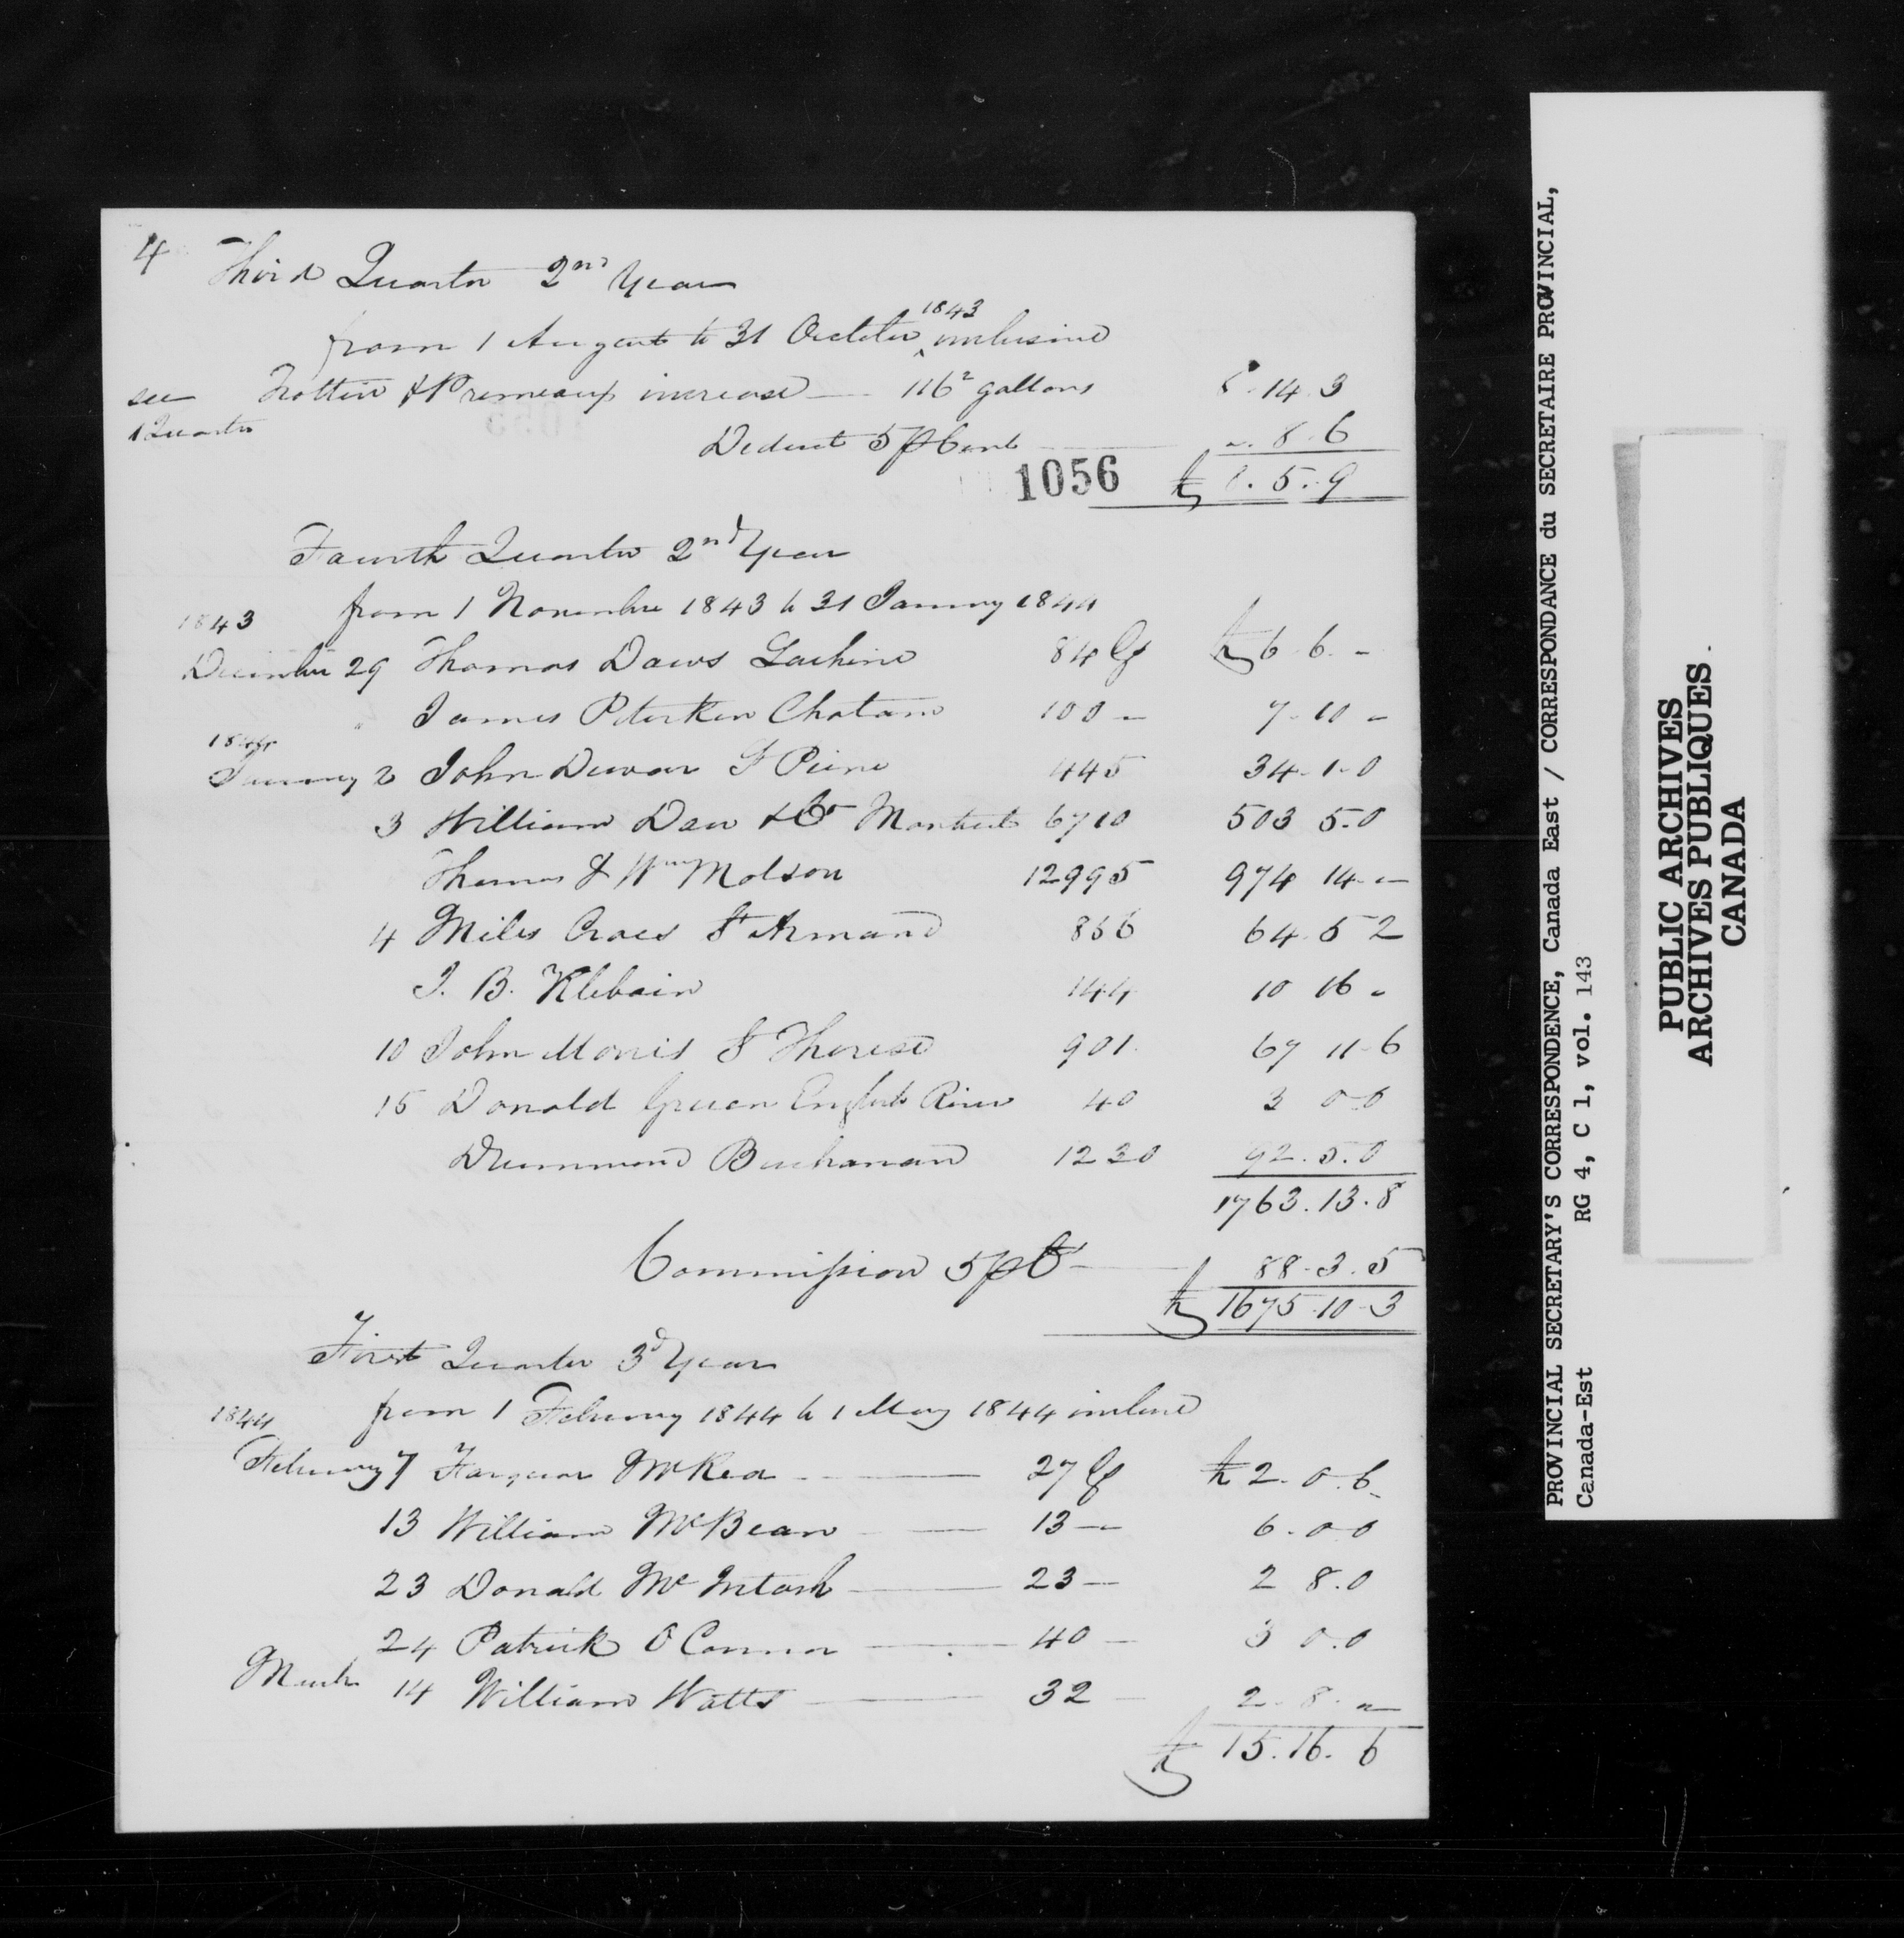 4 Third Quarter 2nd Year
from 1 August to 31 October 1843 inclusive
see Trottier & Primeaux increase 116² gallons 8.14.3
1 Quarter
Deduct 5 p Cent -.8.6
1056 £ 8.5.9
Fourth Quarter 2nd Year
1843 from 1 November 1843 to 31 January 1844
December 29 Thomas Daws Lachine 84 Gs £ 6.6.-
" James Peterken Chatam 100 - 7-10-
1844
January 2 John Dewar St Pierre 445 34-1-0
3 William Daw & Co Montreal 6710 503 5.0
Thomas & Wm Molson 12995 974 14-
4 Miles Croes St Armand 856 64.5 2
J. B. Klebain 144 10 16 -
10 John Morris St Therese 901 67 11-6
15 Donald Green English River 40 3 0-0
Drummond Buchanan 1230 92.5.0
1763.13.8
Commission 5 p Ct 88-3.5
£ 1675-10-3
First Quarter 3d Year
1844 from 1 February 1844 to 1 May 1844 inclusive
February 7 Farquar McRea 27 Gs £ 2.0.6
13 William McBean 13 - 6.00
23 Donald McIntosh 23 - 2 8.0
24 Patrick O Connor 40 - 3 0.0
March 14 William Watts 32 - 2.8.-
£ 15.16.6
PROVINCIAL SECRETARY'S CORRESPONDENCE, Canada East / CORRESPONDANCE du SECRETAIRE PROVINCIAL,
Canada-Est RG 4, C 1, vol. 143
PUBLIC ARCHIVES
ARCHIVES PUBLIQUES
CANADA